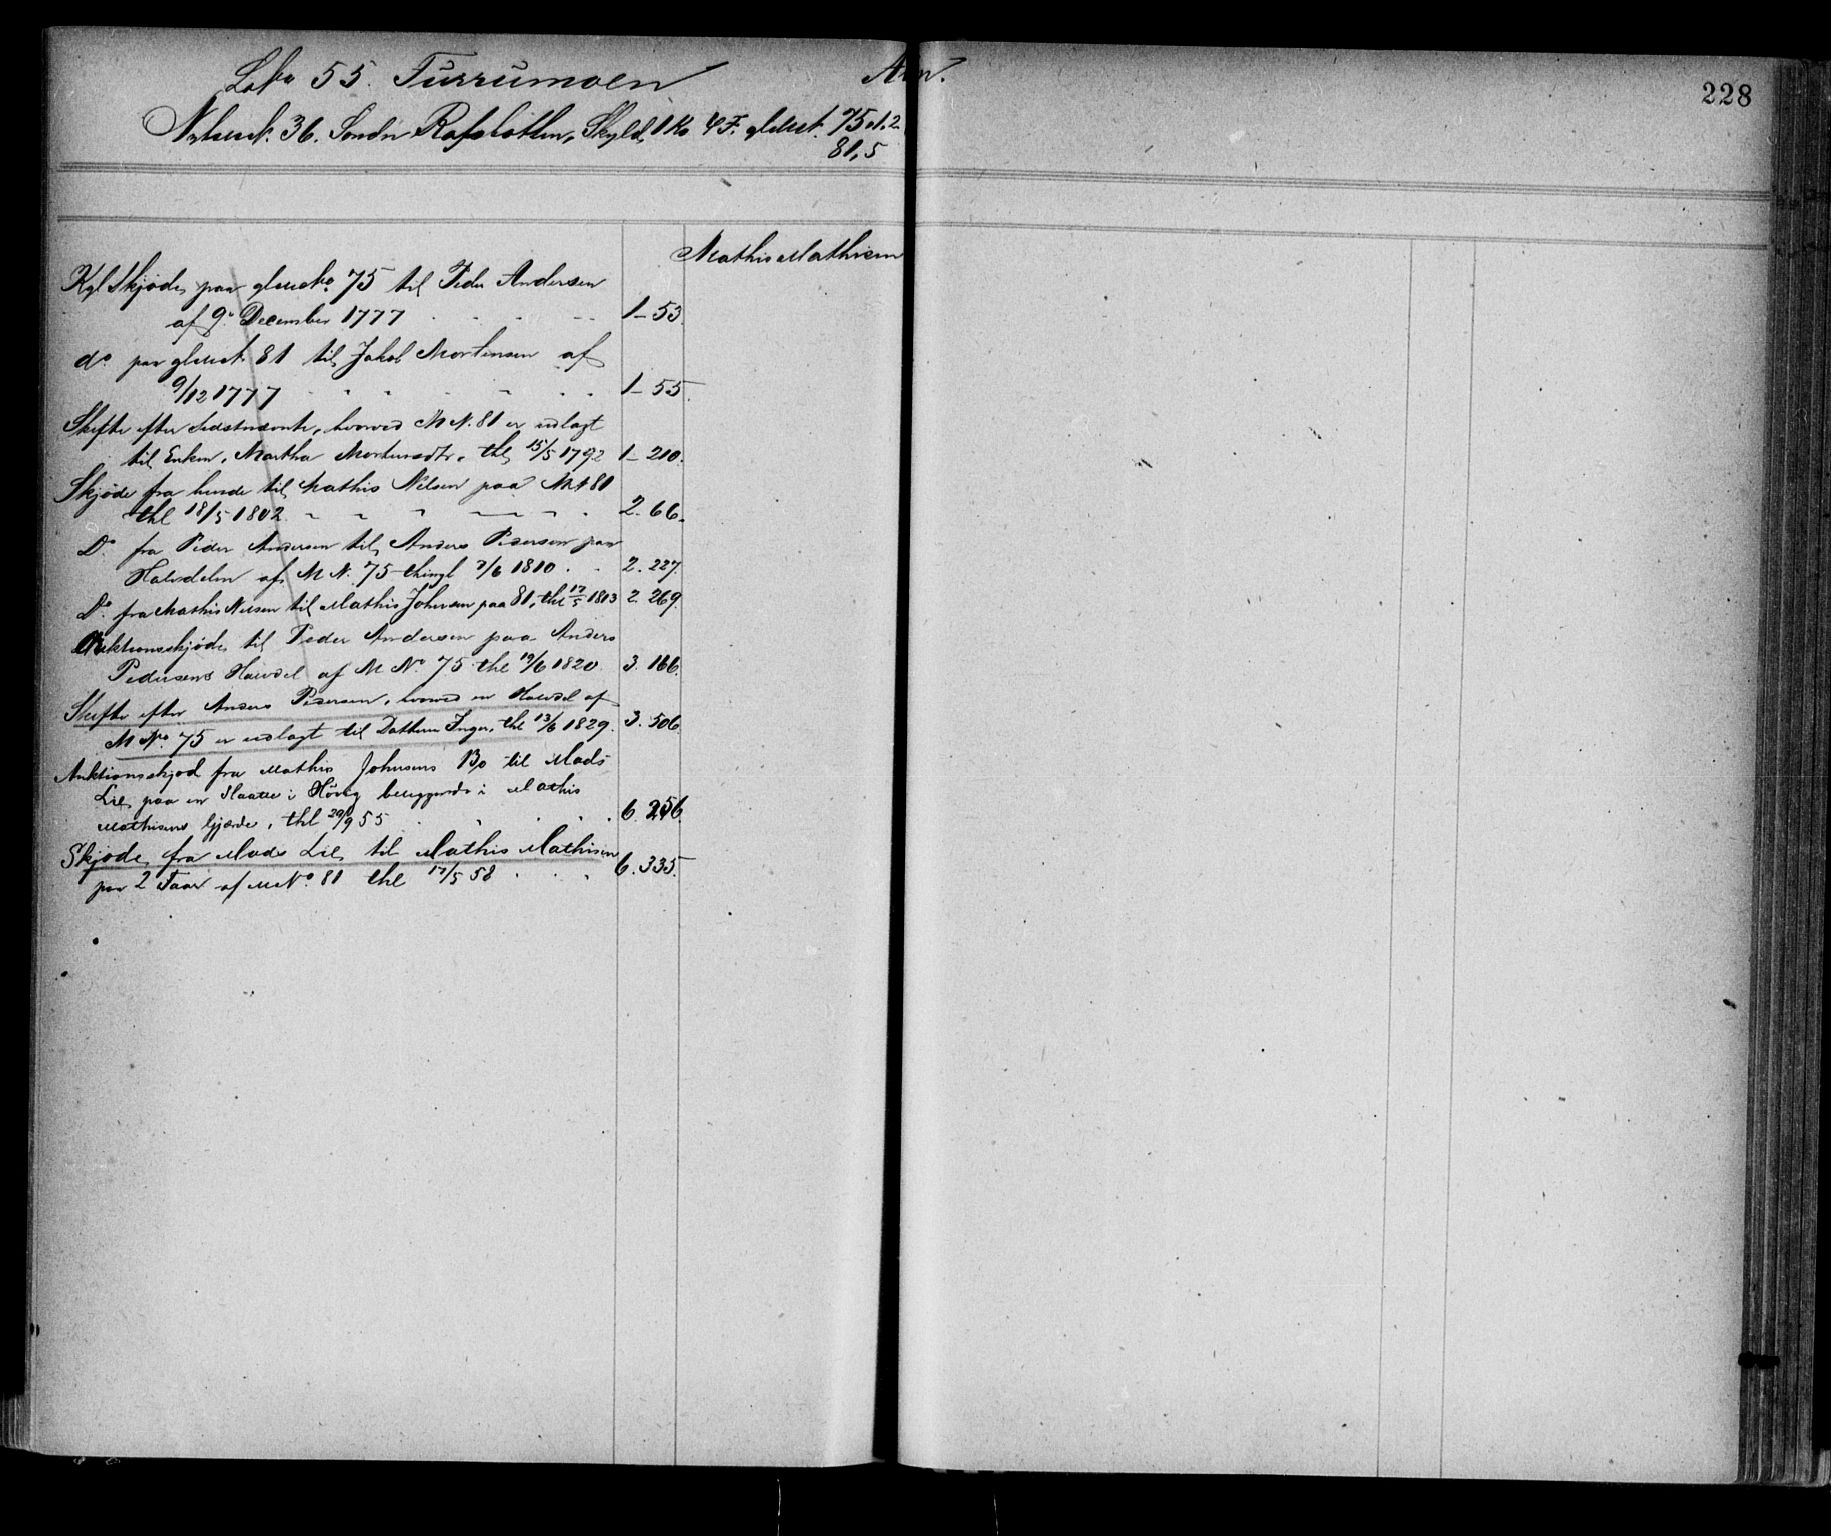 Løbe 55. Furrumoen Anm.
228
Nymatr. 36. Søndre Rafsbotten, Skyld, 1 Ko 4 F. glmatr. 75 1.2
81,5
Mathis Mathisen
Kgl Skjøde paa glmatr. 75 til Peder Andersen
af 9. December 1777 1 - 53
do paa glmatr. 81 til Jakob Mortensen af
9/12 1777 1 - 55
Skifte efter Sidstnævnte, hvorved M N. 81 er udlagt
til Enken, Martha Mortensdtr. thl 15/5 1792 1 - 210.
Skjøde fra hende til Mathis Nilsen paa M N 81
thl 18/5 1802 2. 66.
Do. fra Peder Andersen til Anders Pedersen paa
Halvdelen af M N. 75 thingl 7/6 1810 2. 227.
Do. fra Mathis Nilsen til Mathis Johnsen paa 81, thl 17/5 1813 2. 269.
Auktionsskjøde til Peder Andersen paa Anders
Pedersens Halvdel af M No 75 thl 19/6 1820 3. 166.
Skifte efter Anders Pedersen, hvorved en Halvdel af
M No. 75 er udlagt til Datteren Inger, thl 13/6 1829. 3. 506
Auktionsskjød fra Mathis Johnsens Bo til Mads
Lil, paa en Slaatte i beliggende i Mathis
Mathisens Gjærde, thl 20/9 55 6. 256.
Skjøde fra Mads Lil, til Mathis Mathisen
paa 2 Faar af M No. 81 thl 17/5 58 6. 335.